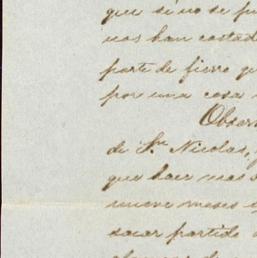 que si no se pu
nos han costad
parte de fierro q
por una cosa
Obser
de Sn. Nicolas,
que hace mas
nueve meses
sacar partido